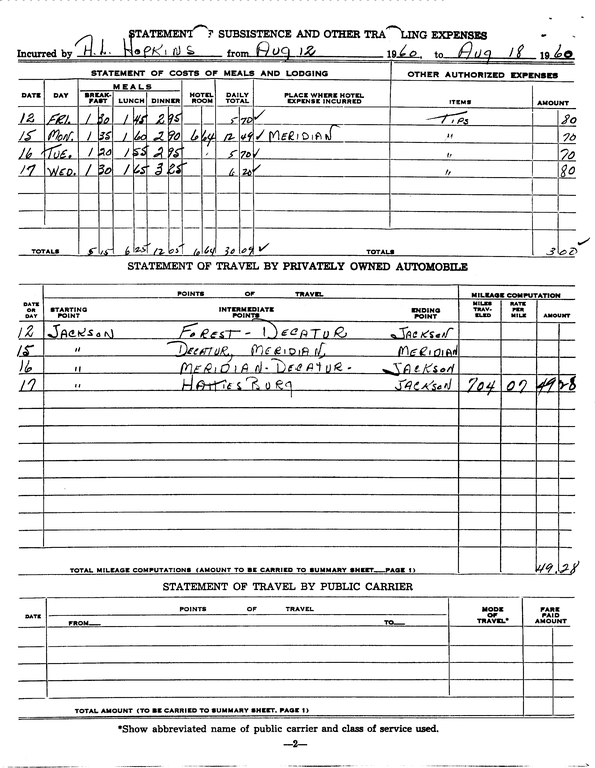 STATEMENT OF SUBSISTENCE AND OTHER TRA LING EXPENSES
Incurred by A.L. HOPKINS from AUG 12 1960, to AUG 18 1960
STATEMENT OF COSTS OF MEALS AND LODGING OTHER AUTHORIZED EXPENSES
DATE DAY MEALS BREAK-FAST LUNCH DINNER HOTEL ROOM DAILY TOTAL PLACE WHERE HOTEL EXPENSE INCURRED ITEMS AMOUNT
12 FRI. 1 30 1 45 2 95 5 70 ✓ TIPS 80
15 MON. 1 35 1 60 2 90 6 64 12 49 ✓ MERIDIAN " 70
16 TUE. 1 20 1 55 2 95 5 70 ✓ " 70
17 WED. 1 30 1 65 3 25 6 20 ✓ " 80
TOTALS 5 15 6 25 12 05 6 64 30 09 ✓ TOTALS 3 00 ✓
STATEMENT OF TRAVEL BY PRIVATELY OWNED AUTOMOBILE
POINTS OF TRAVEL MILEAGE COMPUTATION
DATE OR DAY STARTING POINT INTERMEDIATE POINTS ENDING POINT MILES TRAV-ELED RATE PER MILE AMOUNT
12 JACKSON FOREST - DECATUR JACKSON
15 " DECATUR, MERIDIAN, MERIDIAN
16 " MERIDIAN - DECATUR - JACKSON
17 " HATTIESBURG JACKSON 704 07 49 28
TOTAL MILEAGE COMPUTATIONS (AMOUNT TO BE CARRIED TO SUMMARY SHEET—PAGE 1) 49.28
STATEMENT OF TRAVEL BY PUBLIC CARRIER
DATE POINTS OF TRAVEL MODE OF TRAVEL* FARE PAID AMOUNT
FROM— TO—
TOTAL AMOUNT (TO BE CARRIED TO SUMMARY SHEET, PAGE 1)
*Show abbreviated name of public carrier and class of service used.
—2—